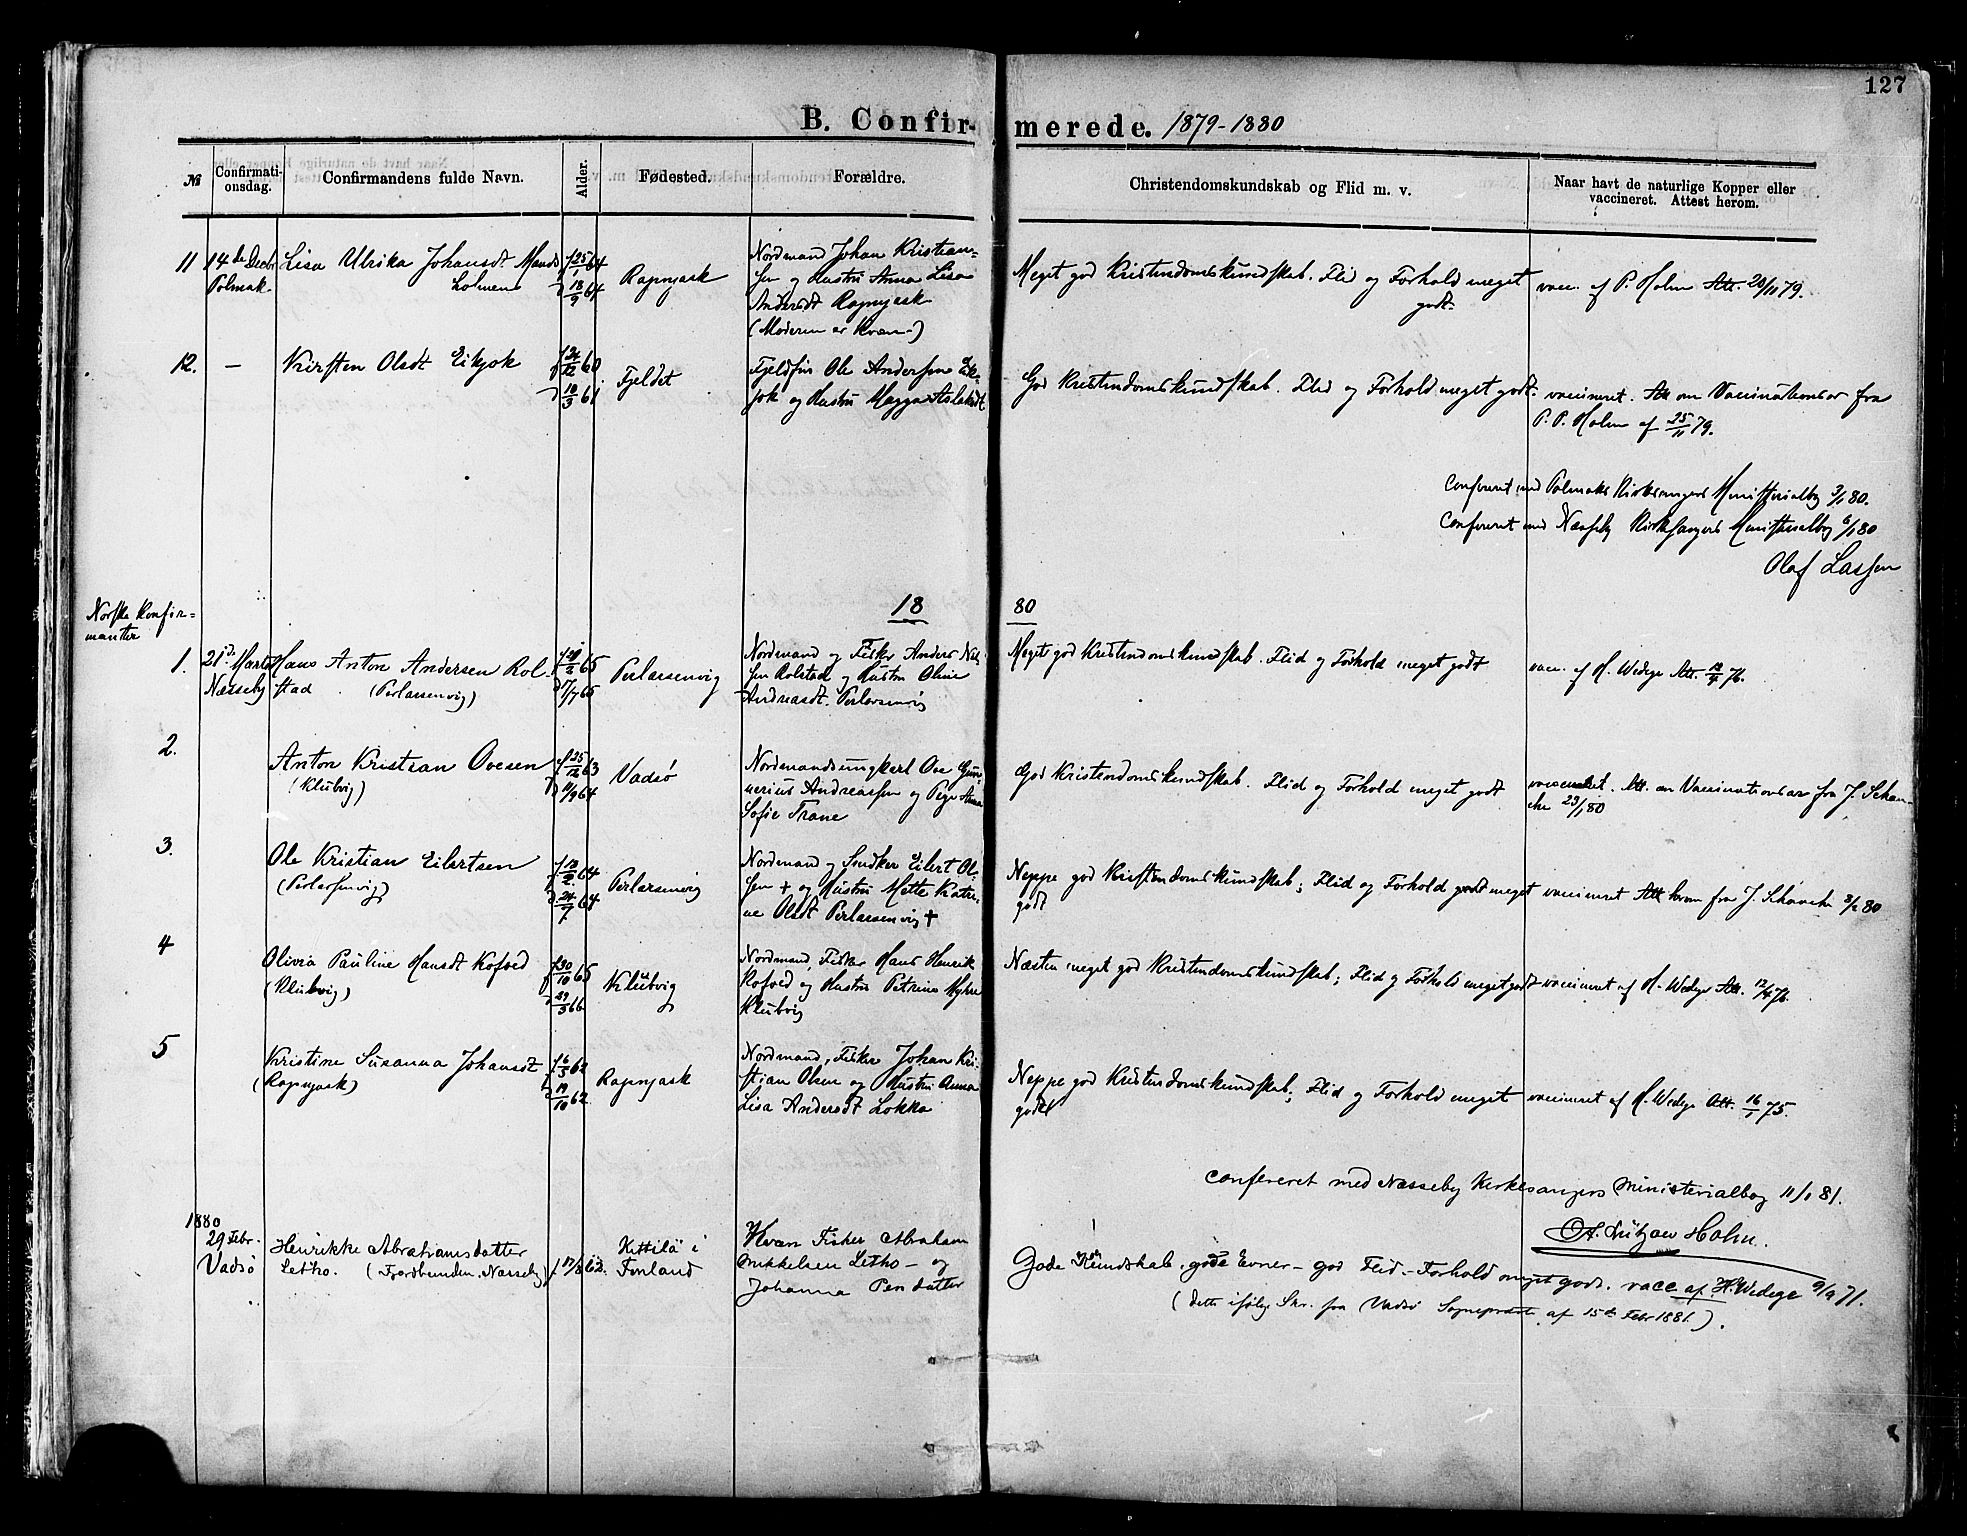 127
B. Confirmerede. 1879-1880
№ Confirmationsdag. Confirmandens fulde Navn. Alder. Fødested. Forældre. Christendomskundskab og Flid m. v. Naar havt de naturlige Kopper eller vaccineret. Attest herom.
11 14de Decbr Polmak
Lisa Ulrika Johansdt Mands
holmen
f 25/1 64
d 18/9 64
Rapnjask
Nordmand Johan Kristian-
sen og Hustru Anna Lisa
Andersdt Rapnjask
(Moderen er Kvæn)
Meget god Kristendomskundskab. Flid og Forhold meget
godt.
vacc. af P. Holm Att. 20/11 79.
12. —
Kirsten Olsdt Eikjok
f 24/12 60
d 10/3 61
Fjeldet
Fjeldfin Ole Andersen Eik-
jok og Hustru Magga Aslaksdt
God Kristendomskundskab. Flid og Forhold meget godt.
vaccineret. Att om Vaccinationsar fra
P. P. Holm af 25/11 79.
Confereret med Polmaks Kirkesangers Ministerialbog 3/1 80.
Confereret med Næsseby Kirkesangers Ministerialbog 6/1 80
Olaf Lassen
1880
Norske Konfir=
manter
1. 21de Marts
Næsseby
Hans Anton Andersen Rol-
stad (Perlarsenvig)
f 21/2 65
d 17/7 65
Perlarsenvig
Nordmand og Fisker Anders Nil
sen Rolstad og Hustru Oline
Andreasdt. Perlarsenvig
Meget god Kristendomskundskab. Flid og Forhold meget godt
vacc. af H. Wedege Att. 12/4 76.
2.
Anton Kristian Ovesen
(Klubvig)
f 25/12 63
d 11/9 64
Vadsø
Nordmandsungkarl Ove Gun-
nerius Andreassen og Pige Anna
Sofie Trane
God Kristendomskundskab. Flid og Forhold meget godt
vaccineret. Att. om Vaccinationsar fra J. Schan-
che 23/1 80
3.
Ole Kristian Eilertsen
(Perlarsenvig)
f 13/2 64
d 24/7 64
Perlarsenvig
Nordmand og Snedker Eilert Ol-
sen † og Hustru Mette Katri-
ne Olsdt Perlarsenvig †
Neppe god Kristendomskundskab; Flid og Forhold godt meget
godt
vaccineret Att herom fra J. Schanche 3/2 80
4
Olivia Pauline Hansdt Kofoed
(Klubvig)
f 30/10 65
d 29/3 66
Klubvig
Nordmand, Fisker Hans Henrik
Kofoed og Hustru Petrine Myhre
Klubvig
Næsten meget god Kristendomskundskab; Flid og Forhold meget godt
vaccineret af H. Wedege Att. 12/4 76.
5
Kristine Susanna Johansdt
(Rapnjask)
f 16/3 62
d 19/10 62
Rapnjask
Nordmand, Fisker Johan Kri-
stian Olsen og Hustru Anna
Lisa Andersdt Lokka
Neppe god Kristendomskundskab; Flid og Forhold meget
godt
vaccineret af H. Wedege Att. 16/1 75.
confereret med Næsseby Kirkesangers Ministerialbog 11/1 81.
A. Lützow Holm.
1880
29 Febr.
Vadsø
Henrikke Abrahamsdatter
Letho. (Fjordbunden, Næsseby)
f. 17/8 62.
Kittilä i
Finland
Kvæn Fisker Abraham
Mikkelsen Letho — og
Johanna Persdatter
Gode Kundskab. gode Evner — god Flid. — Forhold meget godt. vacc. af H. Wedege 9/9 71.
(dette ifølge Skr. fra Vadsø Sognepræst af 15de Febr 1881.).